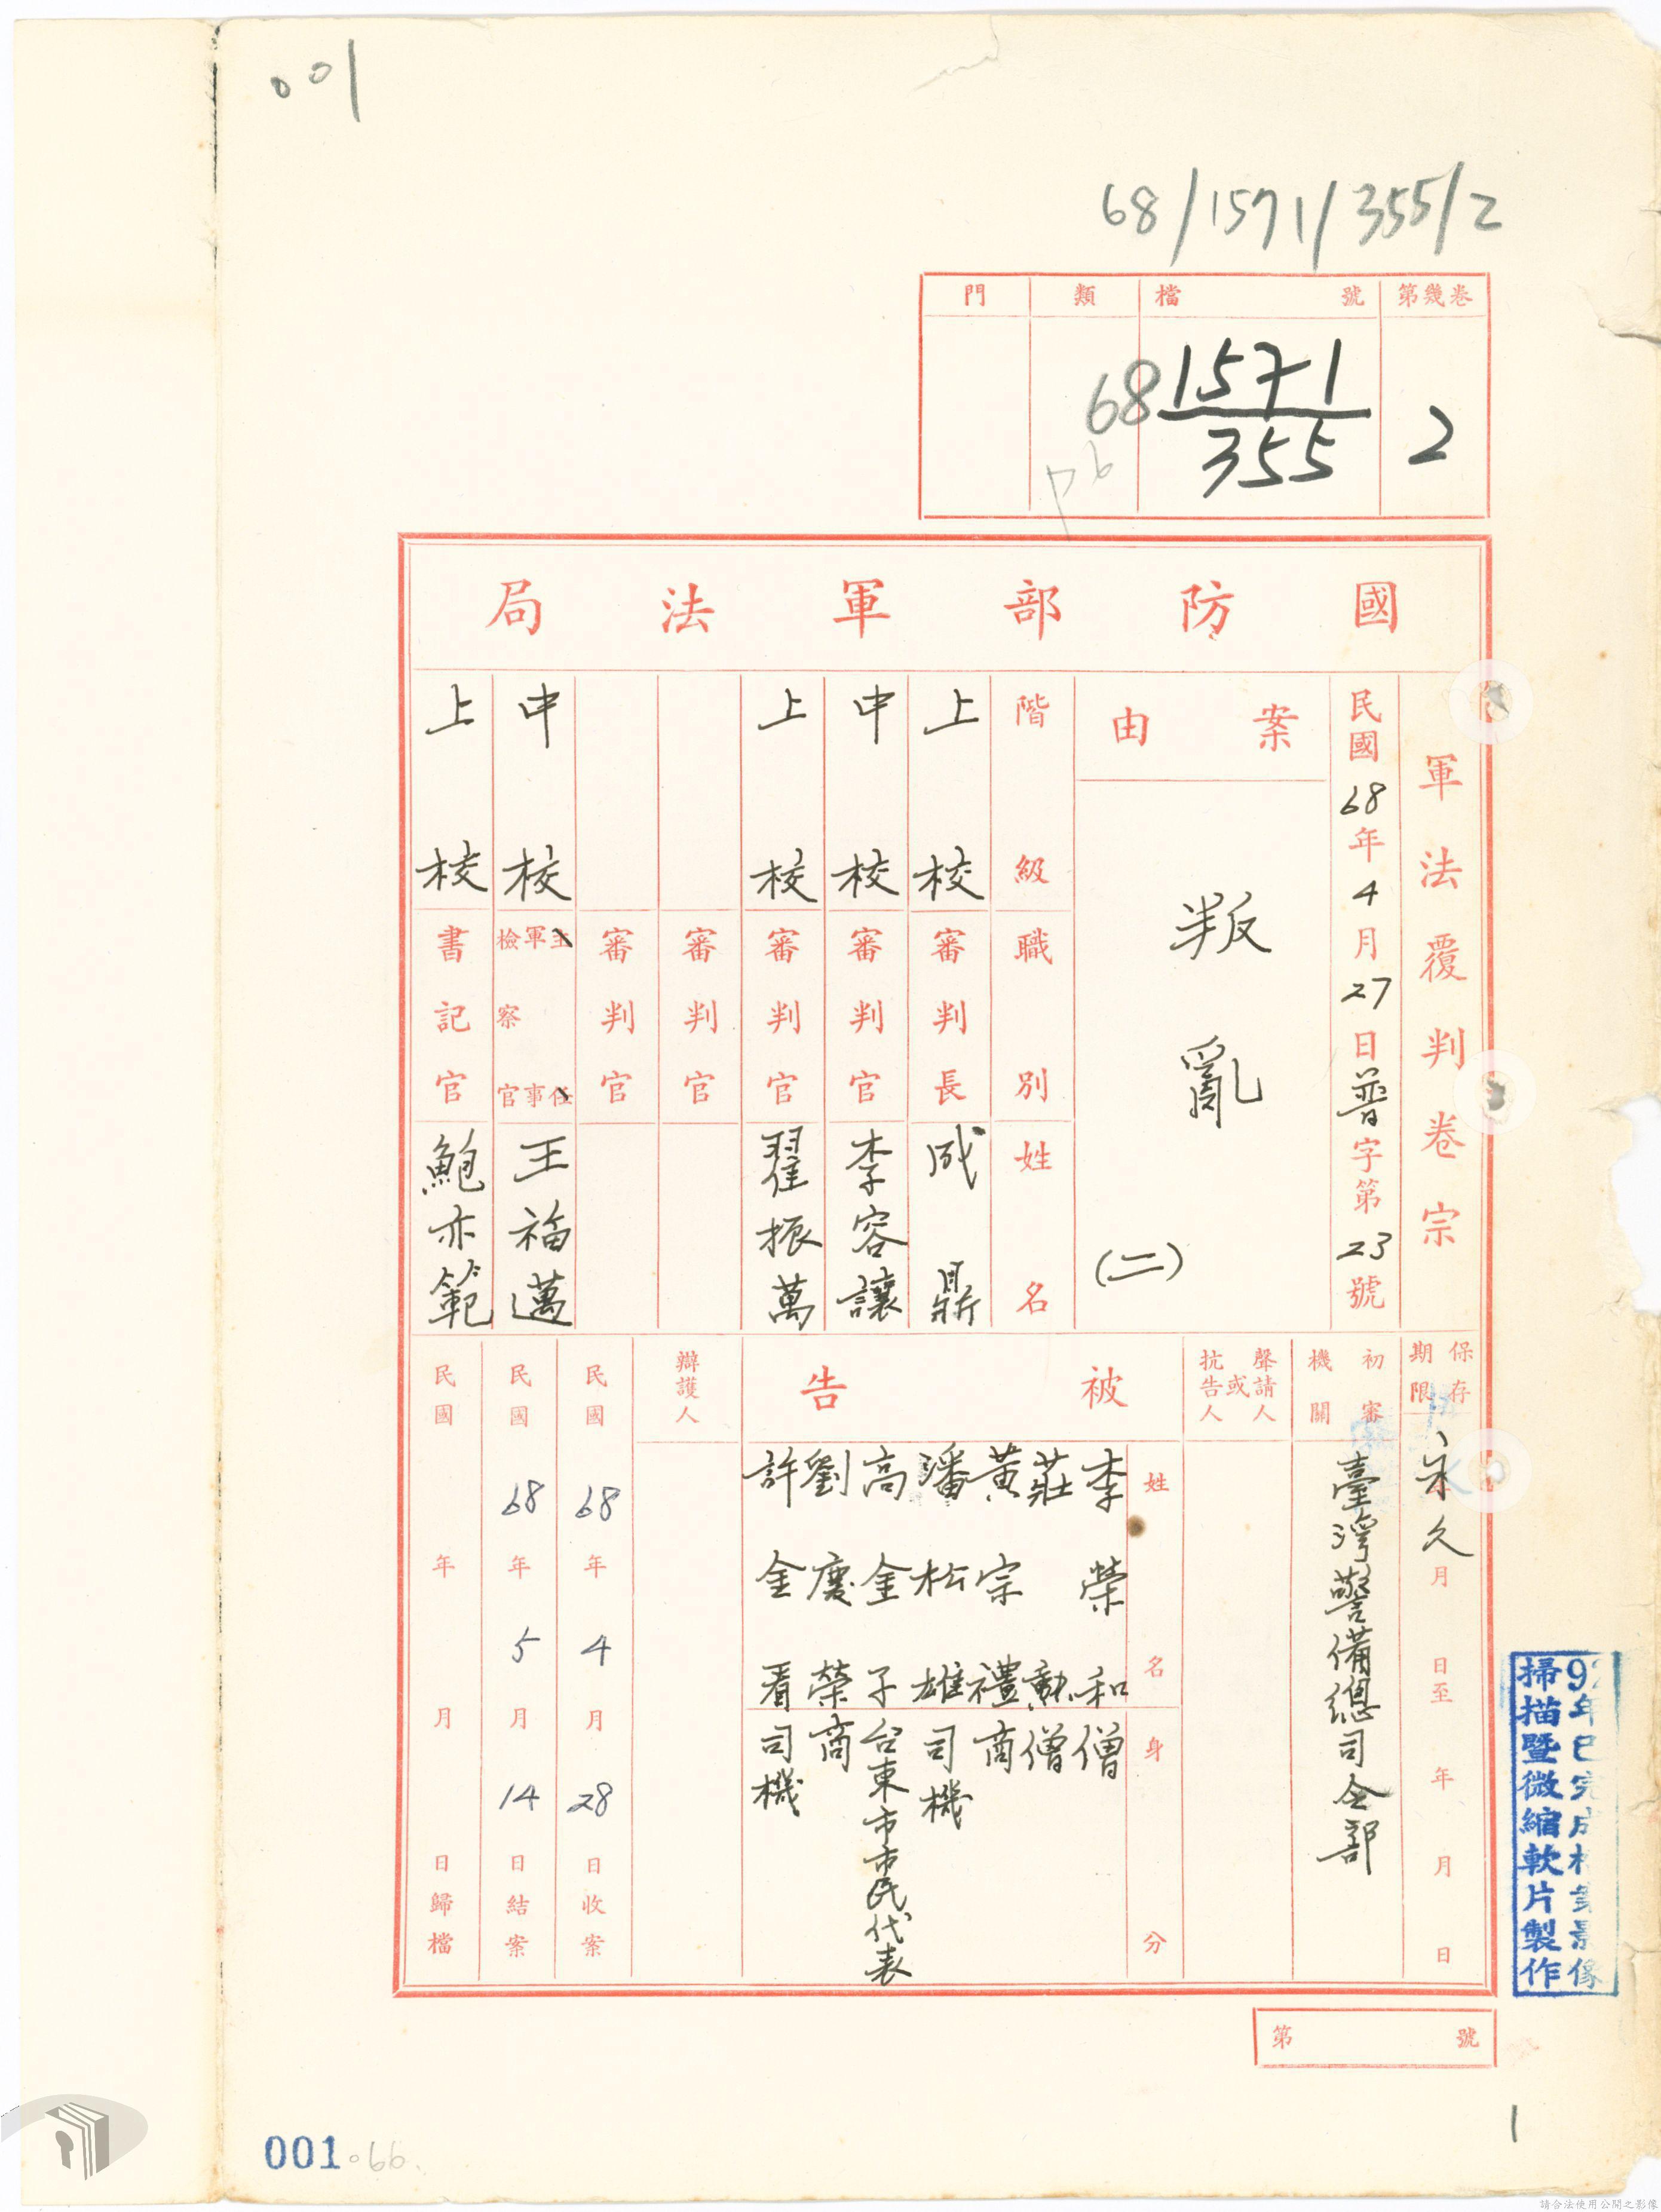 001
68/1571/355/2
第幾卷 2
檔號 68 1571/355
類
門
國防部軍法局
軍法覆判卷宗
民國68年4月27日普字第23號
案由
叛亂
(二)
階級 職別 姓名
上校 審判長 成鼎
中校 審判官 李容讓
上校 審判官 翟振萬
審判官
審判官
中校 主任軍事檢察官 王福邁
上校 書記官 鮑亦範
保存期限 永久
月 日至 年 月 日
初審機關
臺灣警備總司令部
聲請人或抗告人
被告
姓名 身分
李榮和 僧
莊勳 僧
黃宗禮 商
潘松雄 司機
高金子 台東市市民代表
劉慶榮 商
許金看 司機
辯護人
民國68年4月28日收案
民國68年5月14日結案
民國 年 月 日歸檔
年已完成檔案影像
掃描暨微縮軟片製作
第 號
1
001
請合法使用公開之影像